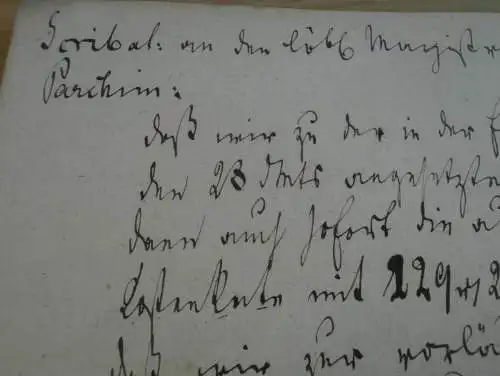 Scribat: an den löbl Magistr
Parchim:
daß wir zu der in der
den 23 dMts angesetzte
dann auch sofort die a
Kosten mit 129
daß wir zur vorlä